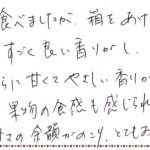 食べましたが、箱をあけ
すごく良い香りがし、
らに甘くてやさしい香りが
果物の食感も感じられ
さの余韻がのこり、とてもお